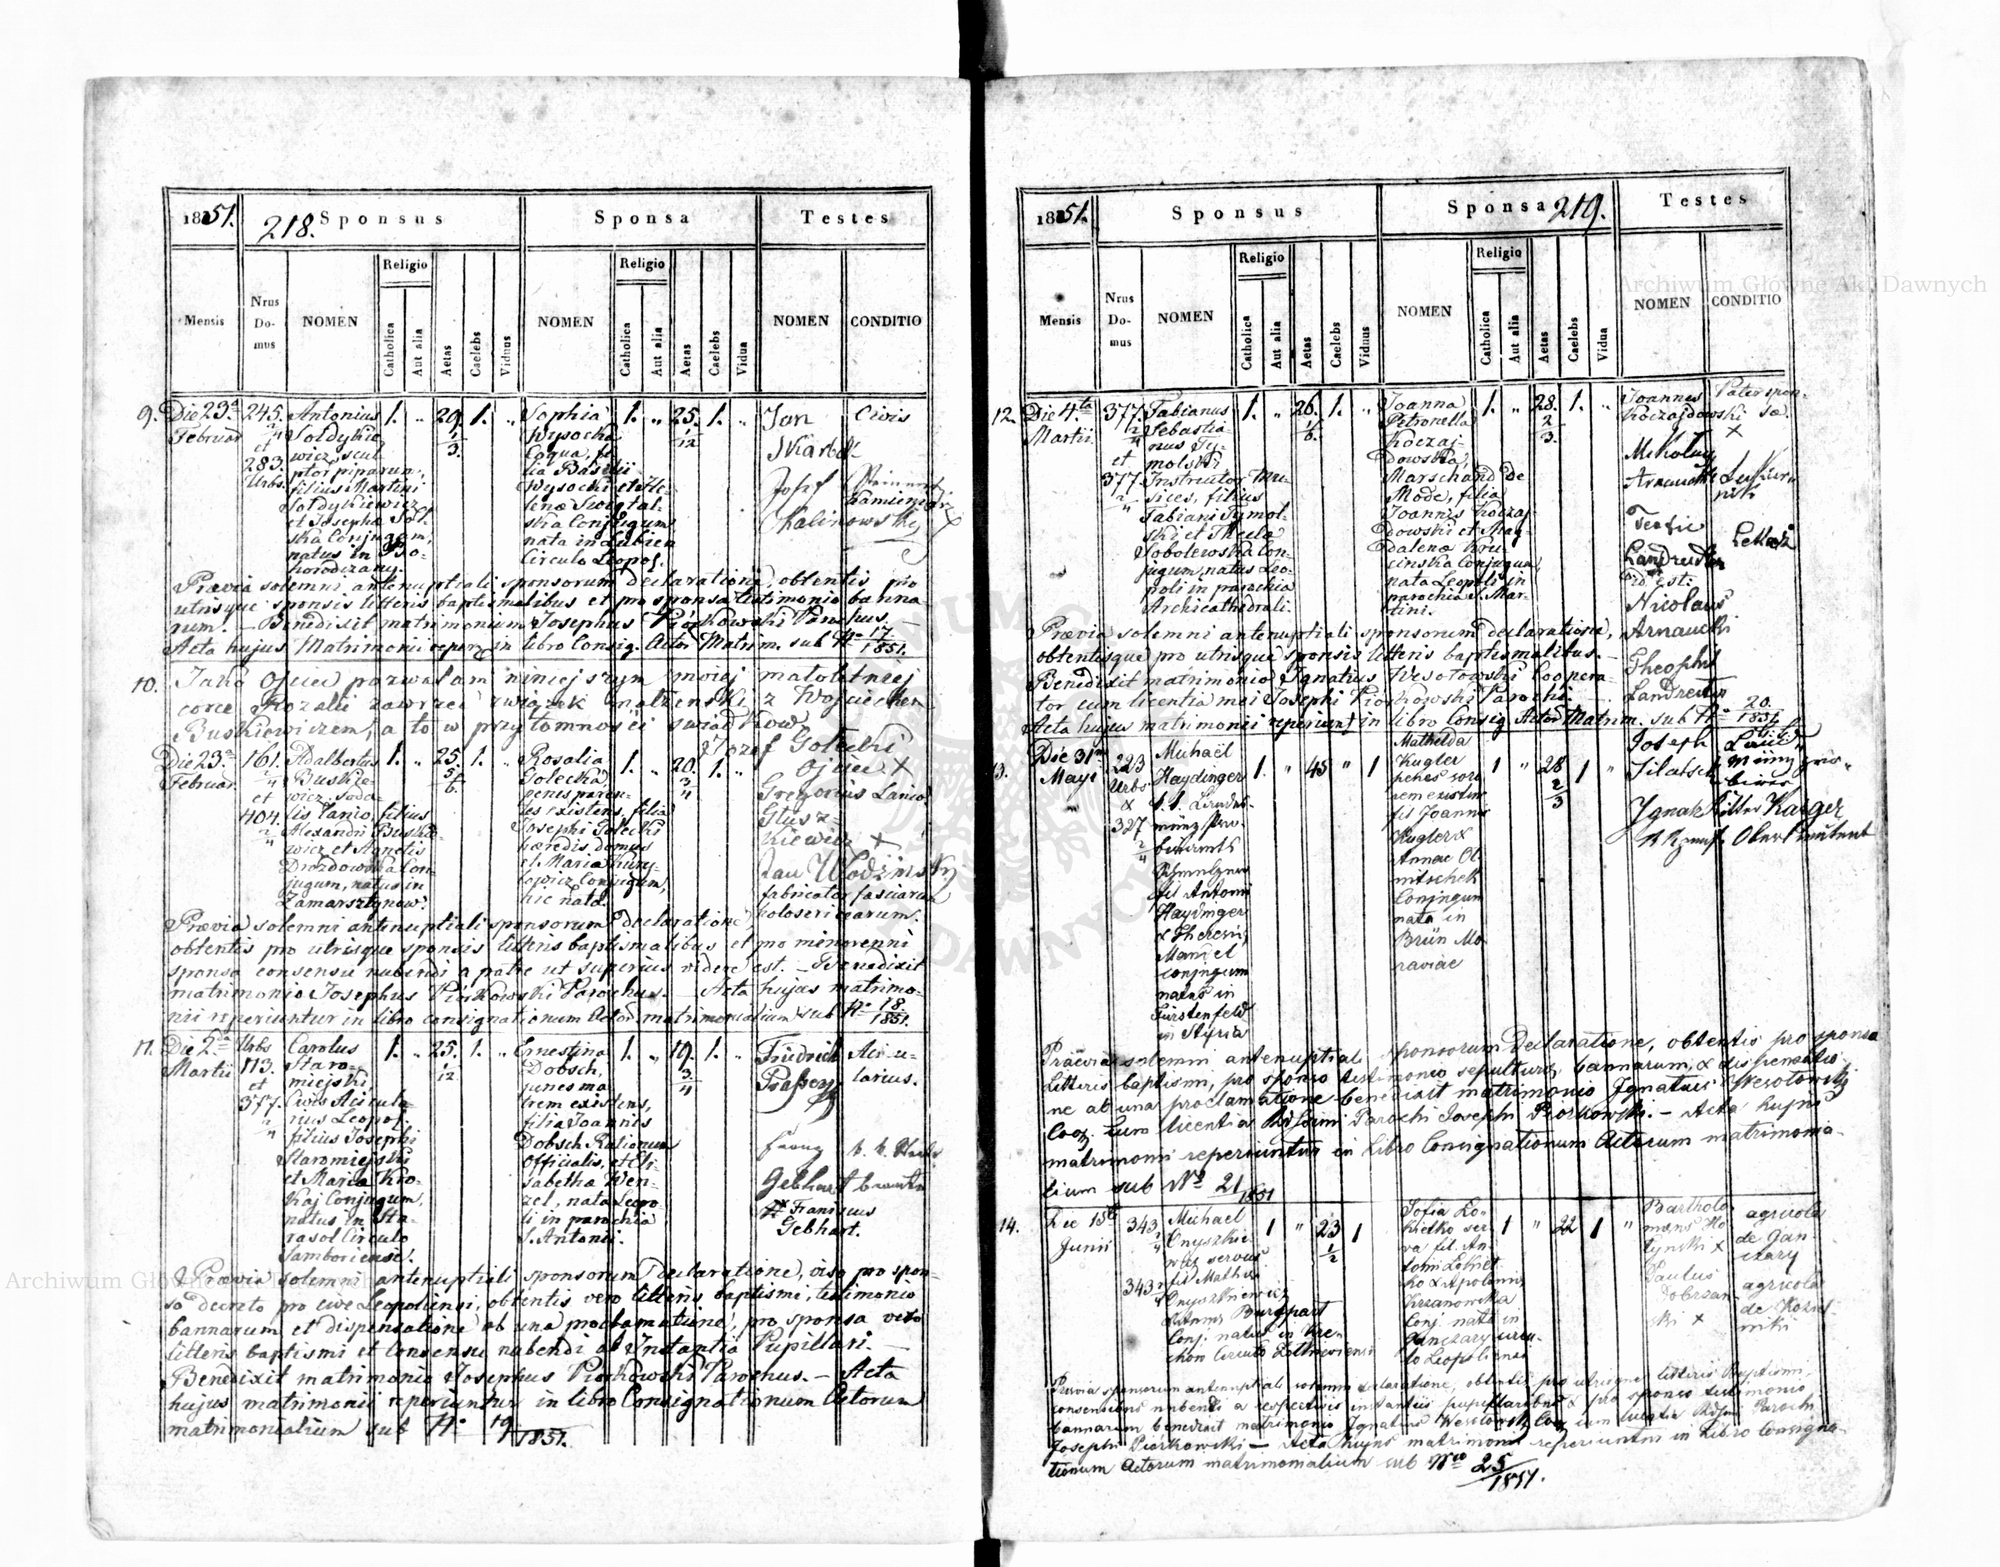 1851.
218.
Sponsus
Sponsa
Testes
Mensis
Nrus Do-mus
NOMEN
Religio
Catholica
Aut alia
Aetas
Caelebs
Viduus
NOMEN
Religio
Catholica
Aut alia
Aetas
Caelebs
Vidua
NOMEN
CONDITIO
9.
Die 23a
Februar
245.
et
283.
Urbs.
Antonius
Soldykie-
wicz, scul-
ptor
filius Martini
Soldykiewicz
et Josepha
ska Conjugum,
natus in Bo-
horodczany.
1. " 29 1/3. 1. "
Sophia
Wysocka
Coqua, fi-
lia Basilii
Wysocki et He-
lenæ
ska Conjugum
nata in Lubien
Circulo Leopol.
1. " 25. 1/12 1. "
Jan
Skarbek
Civis
Josef
Kalinowski
Kamieniarz
Prævia solemni antenuptiali sponsorum declaratione, obtentis pro
utrisque sponsis litteris baptismalibus et pro sponsa testimonio banna
rum. – Benedixit matrimonium Josephus Piórkowski Parochus. –
Acta hujus Matrimonii reper. in libro Consig. Actor. Matrim. sub No 17/1851.
10.
Jako Ojciec pozwalam niniejszym mojej małoletniej
corce Rozalii zawrzeć związek małżeński z Wojciechem
Buskiewiczem, a to w przytomności świadków
Jozef Gołecki
Ojciec X
Die 23a
Februar
161.
et
404.
Adalbertus
Buskie-
wicz, soda-
lis lanio, filius
Alexandri Buskie-
wicz et Agnetis
Drozdowska Con-
jugum, natus in
Zamarsztynow.
1. " 25. 5/6. 1. "
Rosalia
Golecka
penes paren-
tes existens, filia
Josephi Golecki
hæredis domus
et Maria
Conjugum,
hic nata.
1. " 20. 1. "
Gregorius
Glusz-
kiewicz X
Lanio.
Jan Wlodzimirsky
fabricator fasciarum
holosericearum.
Prævia solemni antenuptiali sponsorum declaratione,
obtentis pro utrisque sponsis litteris baptismalibus et pro minorenni
sponsa consensu nubendi a patre ut superius videre est. – Benedixit
matrimonio Josephus Piórkowski Parochus. – Acta hujus matrimo-
nii reperiuntur in libro consignationum Actor. matrimonialium sub No 18/1851.
11.
Die 2da
Martii
Urbs
113.
et
377.
Carolus
Staro-
miejski
Civis Acicula-
rius Leopol.
filius Josephi
Staromiejski
et Maria Kro-
kaj Conjugum,
natus in Sta-
rasol Circulo
Samboriensi.
1. " 25. 1/12 1. "
Ernestina
Dobsch,
penes ma-
trem existens,
filia Joannis
Dobsch Rationum
Officialis, et Eli-
sabetha Wen-
zel, nata Leopo-
li in parochia
S. Antonii.
1. " 19. 1. "
Friedrich
Acicu-
larius.
Franz
Gebhart
Franciscus
Gebhart.
Prævia solemni antenuptiali sponsorum declaratione, viso pro spon-
so decreto pro cive Leopoliensi, obtentis vero litteris baptismi, testimonio
bannarum et dispensatione ab una proclamatione, pro sponsa vero
litteris baptismi et Consensu nubendi ab Instantia Pupillari. –
Benedixit matrimonio Josephus Piórkowski Parochus. – Acta
hujus matrimonii reperiuntur in libro Consignationum Actorum
matrimonialium sub No 19/1851.
1851.
Sponsus
Sponsa
219.
Testes
Mensis
Nrus Do-mus
NOMEN
Religio
Catholica
Aut alia
Aetas
Caelebs
Viduus
NOMEN
Religio
Catholica
Aut alia
Aetas
Caelebs
Vidua
NOMEN
CONDITIO
12.
Die 4ta
Martii
377
et
377
Fabianus
Sebastia-
nus Ty-
molski
Instructor Mu-
sices, filius
Fabiani Tymol-
ski et Thecla
Sobolewska Con-
jugum, natus Leo-
poli in parochia
Archicathedrali.
1. " 26. 1/6. 1. "
Joanna
Petronella
Koczaj-
dowska,
Marschand de
Mode, filia
Joannis Koczaj-
dowski et Mag-
dalenæ Kru-
cinska Conjugum
nata Leopoli in
parochia S. Mar-
tini.
1. " 28. 2/3. 1. "
Joannes
Koczajdowski
Pater spon-
sæ
X
Mikołaj
Teofil
Id est:
Nicolaus
Arnaucki
Theophil
Prævia solemni antenuptiali sponsorum declaratione,
obtentisque pro utrisque sponsis litteris baptismalibus. –
Benedixit matrimonio Ignatius Wesołowski Coopera-
tor cum licentia mei Josephi Piórkowski Parochi.
Acta hujus matrimonii reperiunt. in libro Consig. Actor. Matrim. sub No 20./1851.
13.
Die 31ma
Maji
223
Urbs
&
327
Michael
Haydinger
münz Pro-
fil Antoni
Haydinger
& Theresia
conjugum
natus in
Fürstenfeld
in Styria
1. " 45 " 1
Mathilda
Kugler
penes soro-
rem existens
fil Joannis
Kugler &
Annae Ol-
mitschek
Conjugum
nata in
Brün Mo-
raviae
1 " 28 2/3 1 "
Joseph
Ignatz Ritter Karger
Oberlieutenant
Praevia solemni antenuptiali sponsorum declaratione, obtentis pro sponsa
litteris baptismi, pro sponso testimonio sepulturæ, bannarum, & dispensatio-
ne ab una proclamatione benedixit matrimonio Ignatius Wesołowski
Coop. cum licentia Parochi Josephi Piorkowski. – Acta hujus
matrimonii reperiuntur in Libro Consignationum Actorum matrimonia-
lium sub No 21/1851
14.
Die 15ta
Junii
343
343
Michael
Onyszkie-
wicz servus
fil Mathia
Onyszkiewicz
& Anna
Conj. natus in
Circulo Zolkiewiensi
1 " 23 1/2 1
Sofia Lo-
kietko ser-
va fil. An-
toni Lokiet-
ko & Apolonia
Krzanowska
Conj. nata in
Ganczary circu-
lo Leopoliensi
1 " 22 1 "
Bartholo-
maeus Ho-
tynski X
agricola
de Gan-
czary
Paulus
Dobrzan-
ski X
agricola
de
Praevia sponsorum antenuptiali solemni declaratione, obtentis pro utrisque litteris Baptismi,
consensibus nubendi a respectivis instantiis pupillaribus & pro sponso testimonio
bannarum benedixit matrimonio Ignatius Wesołowski Coop cum licentia Parochi
Josephi Piorkowski – Acta hujus matrimonii reperiuntur in Libro Consigna-
tionum Actorum matrimonialium sub Nro 25/1851.
Archiwum Główne Akt Dawnych